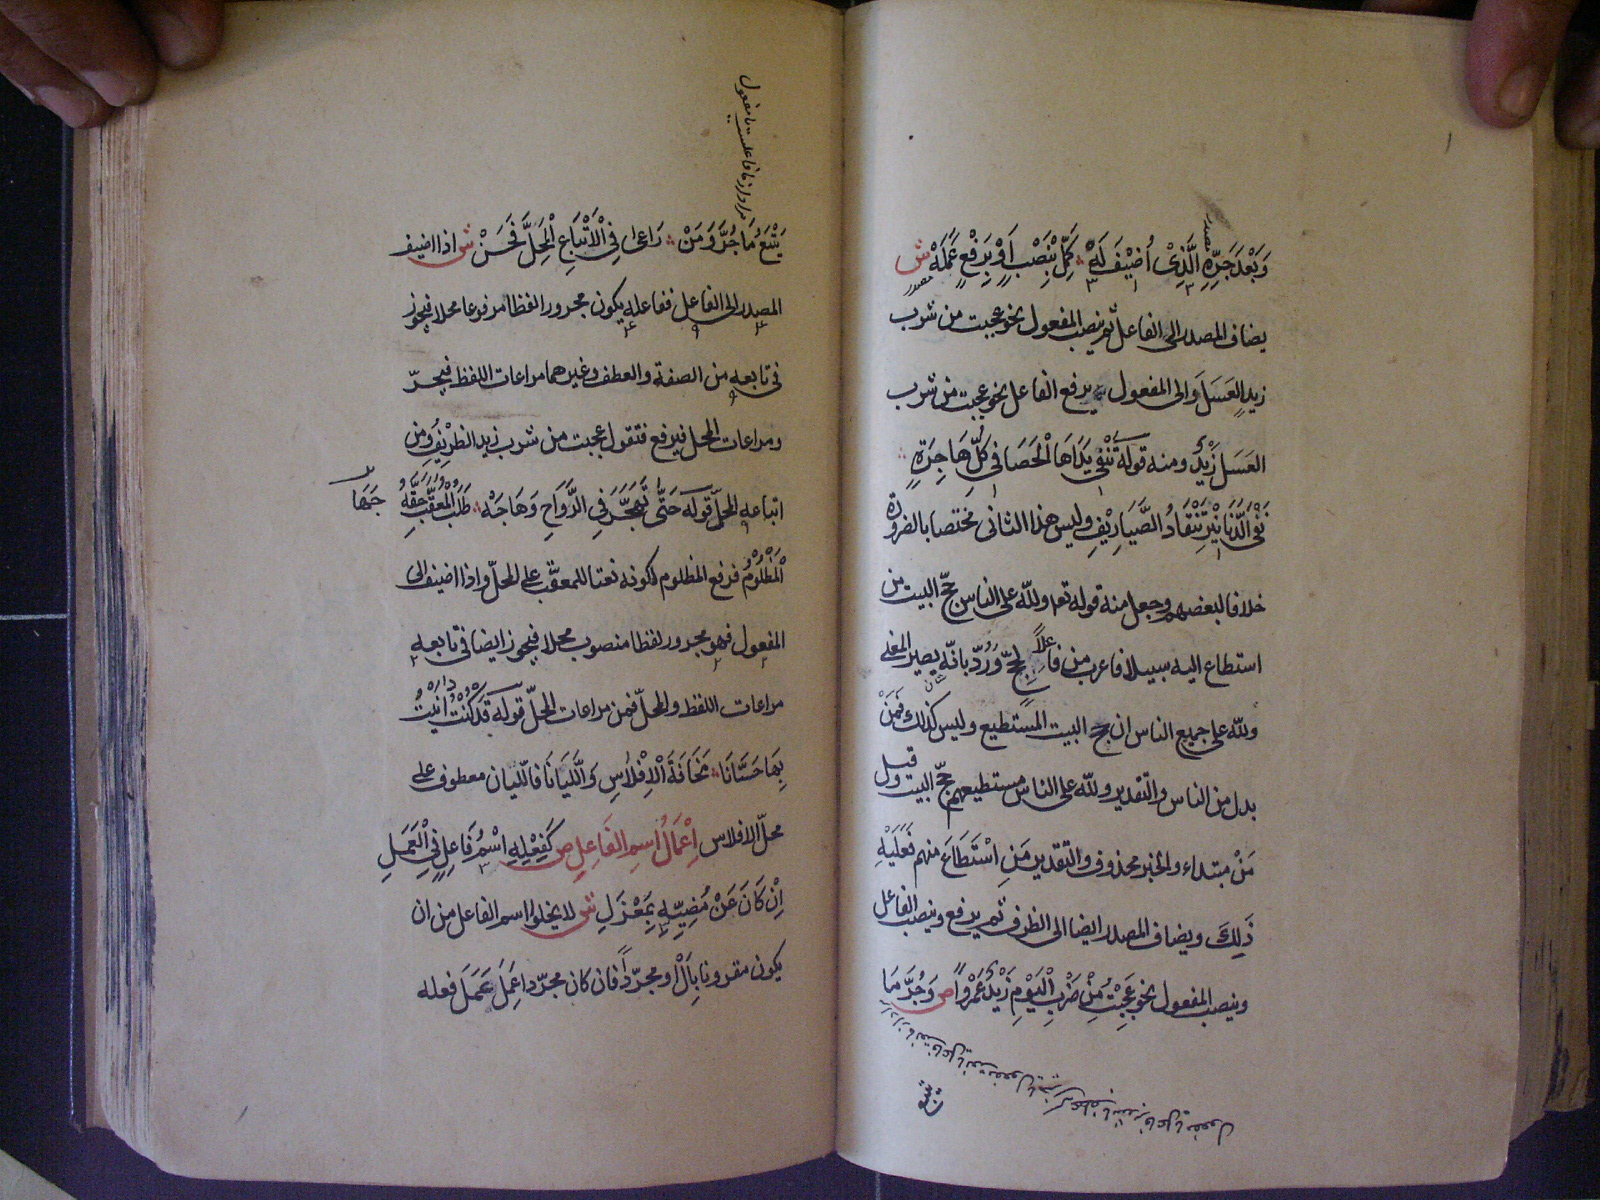 وَبَعْدَ جَرِّهِ الَّذِىْ اُضِيْفَ لَهٗ كَمِّلْ بِنَصْبٍ اَوْ بِرَفْعٍ عَمَلَهْ ش
مصدر
مصدر
يضاف المصدر الى الفاعل ثم ينصب المفعول نحو عجبت من شرب
زيدٍ العَسَلَ والى المفعول ثم يرفع الفاعل نحو عجبت من شرب
العَسَلِ زَيْدٌ ومنه قوله تَنْفِىْ يَدَاهَا الْحَصَا فِىْ كُلِّ هَاجِرَةٍ
نَفْىَ الدَّنَانِيْرِ تَنْقَادُ الصَّيَارِيْفِ وليس هذا الثانى مختصا بالضرورة
خلافا لبعضهم وجعل منه قوله تع ولله على الناس حجّ البيت من
استطاع اليه سبيلا فاعرب من فاعلاً لحجّ ورُدّ بانّه يصير المعنى
ولله على جميع الناس ان يحج البيت المستطيع وليس كذلك فمَنْ
بدل من الناس والتقدير ولله على الناس مستطيعهم حجّ البيت وقيل
مَنْ مبتداء والخبر محذوف والتقدير مَنِ اسْتَطَاعَ منهم فَعَلَيْهِ
ذٰلِكَ ويضاف المصدر ايضا الى الظرف ثم يرفع وينصب الفاعل
وينصب المفعول نحو عَجِبْتُ مِنْ ضَرْبِ الْيَوْمِ زَيْدٌ عَمْرًوا ص وَجُرَّ مَا
يَتْبَعُ مَا جُرَّ وَمَنْ رَاعٰى فِى الْاَتْبَاعِ الْمَحَلَّ فَحَسَنْ ش اذا اضيف
المصدر الى الفاعل ففاعله يكون مجرورا لفظا مرفوعا محلا فيجوز
فى تابعه من الصفة والعطف وغيرهما مراعات اللفظ فيجرّ
ومراعات المحل فيرفع فتقول عجبت من شرب زيد الظريفُِ ومن
اتباعه المحلّ قوله حَتّٰى تَهَجَّرَ فِى الرَّوَاحِ وَهَاجَهْ طَلَبُ الْمُعَقِّبِ حَقَّهُ
الْمَظْلُوْمُ فرفع المظلوم لكونه نعتا للمعقّب على المحلّ واذا اضيف الى
المفعول فهو مجرور لفظا منصوب محلا فيجوز ايضا فى تابعه
مراعات اللفظ والمحلّ فمن مراعات المحلّ قوله قَدْ كُنْتُ دَايَنْتُ
بِهَا حَسَّانَا مَخَافَةَ الْاِفْلَاسِ وَاللَّيَانَا فالليان معطوف على
محلّ الافلاس اِعْمَالُ اسمِ الفَاعِلِ ص كَفِعْلِهِ اسْمُ فَاعِلٍ فِى الْعَمَلِ
اِنْ كَانَ عَنْ مُضِيِّهِ بِمَعْزَلِ ش لا يخلوا اسم الفاعل من ان
يكون مقرونا بِاَلْ او مجرّدًا فان كان مجرّدا عَمِلَ عَمَلَ فعله